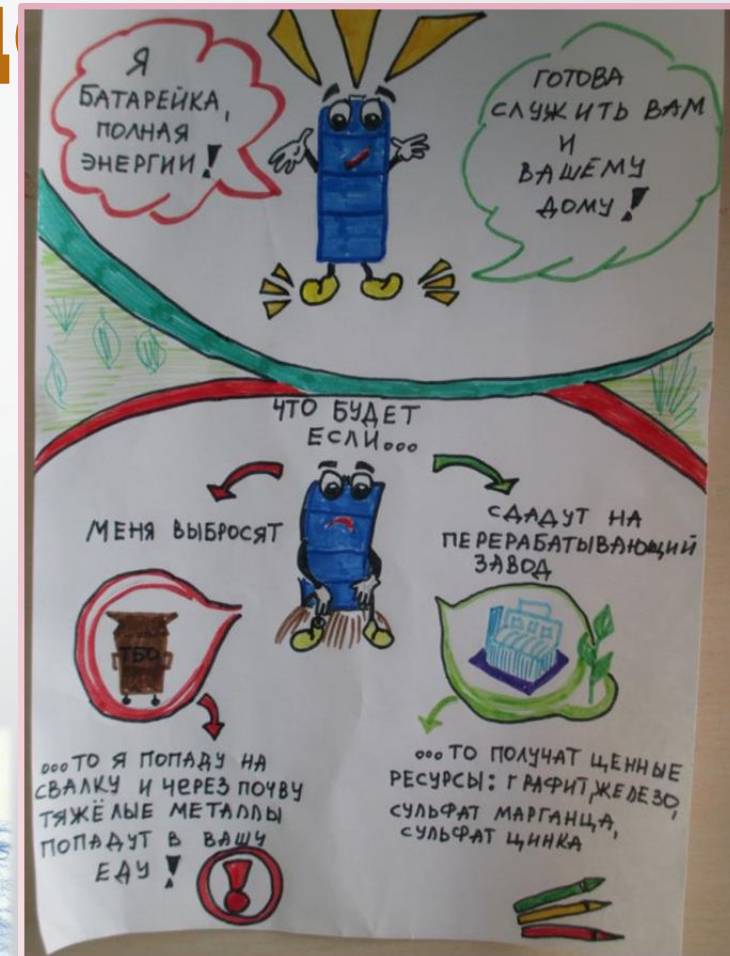 Я
БАТАРЕЙКА,
ПОЛНАЯ
ЭНЕРГИИ!
ГОТОВА
СЛУЖИТЬ ВАМ
И
ВАШЕМУ
ДОМУ!
ЧТО БУДЕТ
ЕСЛИ...
МЕНЯ ВЫБРОСЯТ
СДАДУТ НА
ПЕРЕРАБАТЫВАЮЩИЙ
ЗАВОД
ТБО
...ТО Я ПОПАДУ НА
СВАЛКУ И ЧЕРЕЗ ПОЧВУ
ТЯЖЁЛЫЕ МЕТАЛЛЫ
ПОПАДУТ В ВАШУ
ЕДУ!
!
...ТО ПОЛУЧАТ ЦЕННЫЕ
РЕСУРСЫ: ГРАФИТ, ЖЕЛЕЗО,
СУЛЬФАТ МАРГАНЦА,
СУЛЬФАТ ЦИНКА